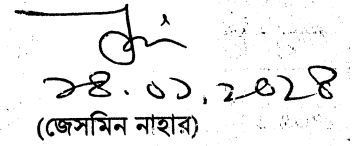 ২৪.০১.২০২৪
(জেসমিন নাহার)